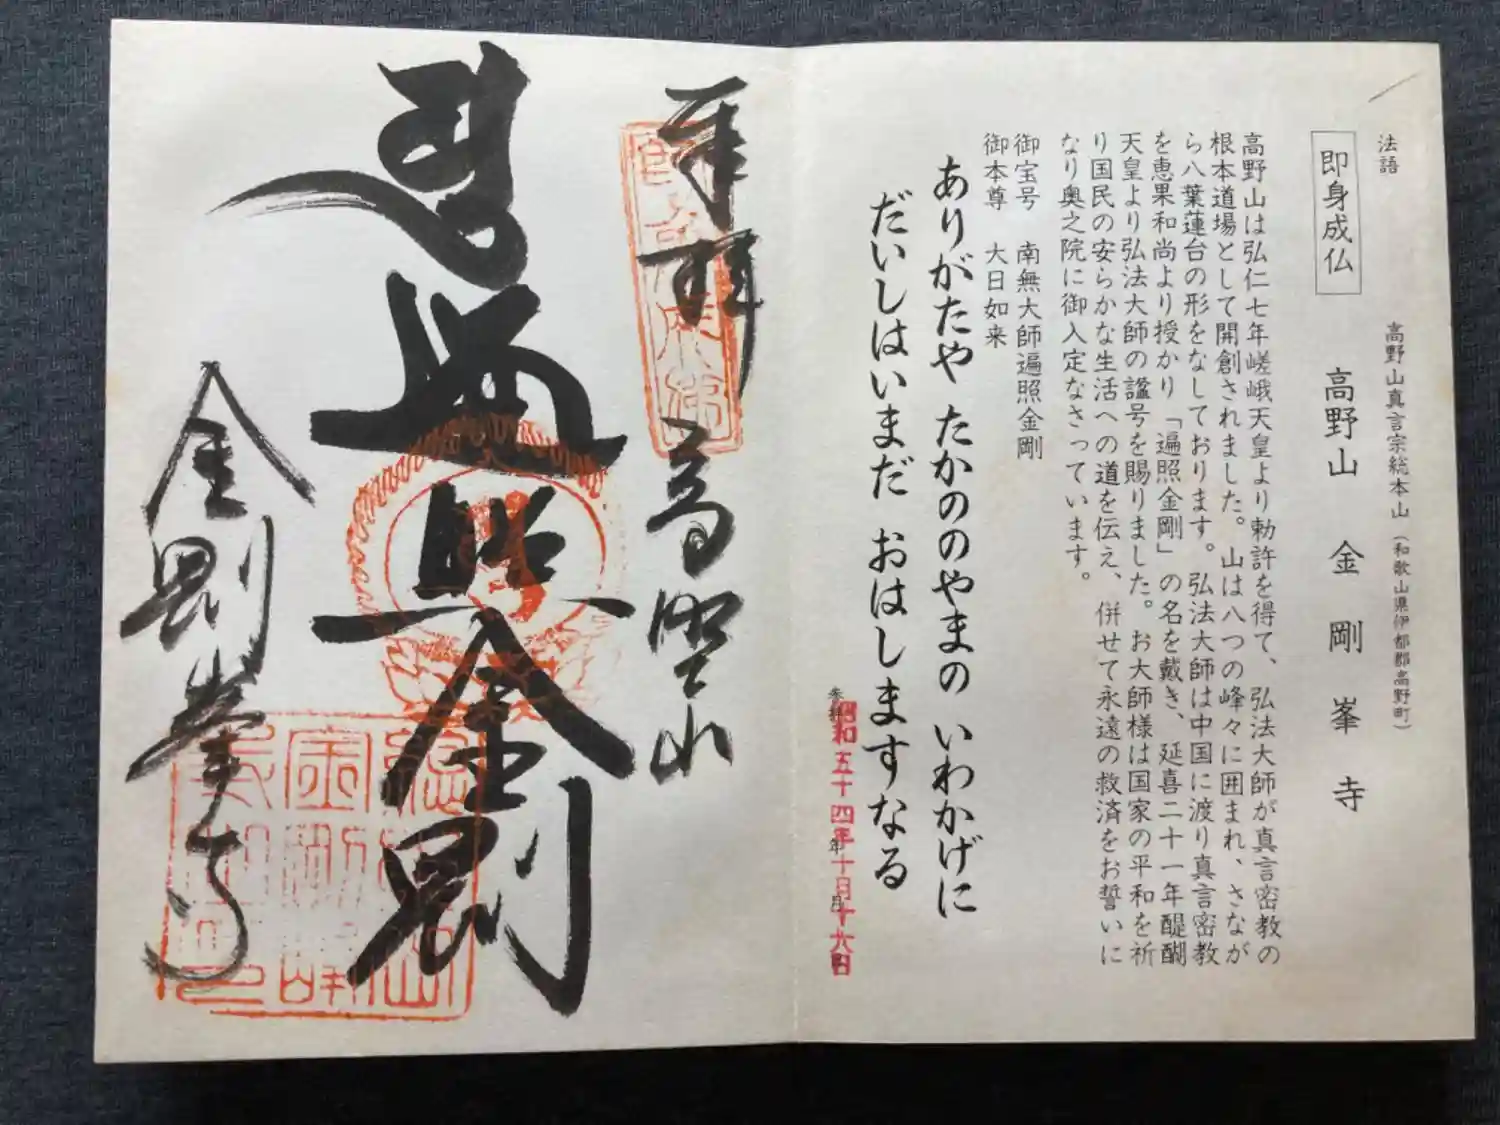 法語
高野山真言宗総本山（和歌山県伊都郡高野町）
即身成仏 高野山 金剛峯寺
高野山は弘仁七年嵯峨天皇より勅許を得て、弘法大師が真言密教の
根本道場として開創されました。山は八つの峰々に囲まれ、さなが
ら八葉蓮台の形をなしております。弘法大師は中国に渡り真言密教
を恵果和尚より授かり「遍照金剛」の名を戴き、延喜二十一年醍醐
天皇より弘法大師の諡号を賜りました。お大師様は国家の平和を祈
り国民の安らかな生活への道を伝え、併せて永遠の救済をお誓いに
なり奥之院に御入定なさっています。
御宝号 南無大師遍照金剛
御本尊 大日如来
ありがたや たかののやまの いわかげに
だいしはいまだ おはしますなる
参拝 年 月 日
昭和五十四年十月十六日
奉拝 高野山
遍照金剛
金剛峯寺